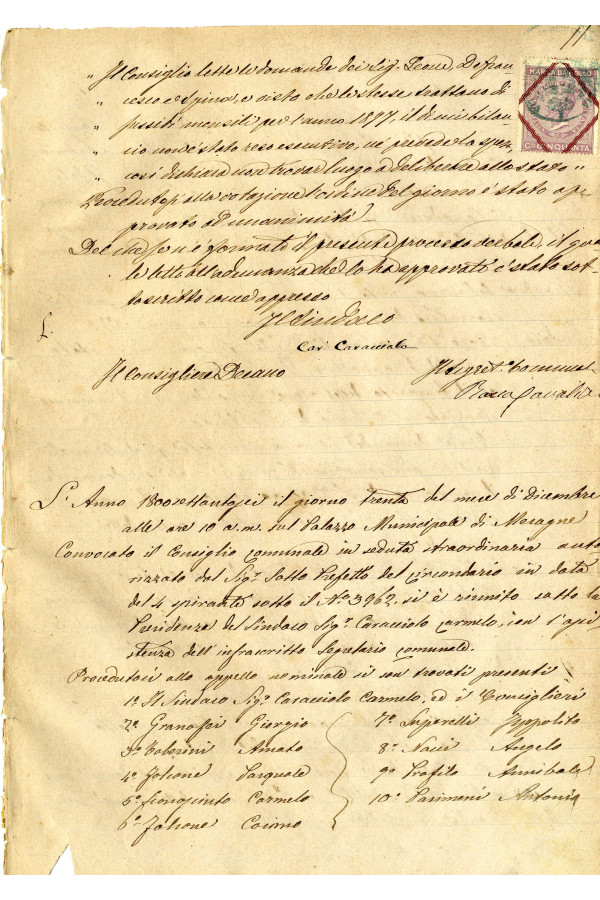 11
MARCA DA BOLLO
C. CINQUANTA
„ Il Consiglio lette le domande dei Sig. Leone, Defran-
„ cesco e Spina, e visto che le stesse trattano di
„ mensili per l'anno 1877, il di cui bilan-
„ cio non è stato reso esecutivo, nè prevede la spesa
„ così dichiara non trovar luogo a deliberare allo stato „
Procedutosi alla votazione l'ordine del giorno è stato ap-
provato ad unanimità.
Del che se n'è formato il presente processo verbale, il qua
le letto all'adunanza che lo ha approvato è stato sot-
toscritto come appresso
Il Sindaco
Cav. Caracciolo
Il Consigliere Decano
Il Segret. Comunal
L' Anno 1800settantasei il giorno trenta del mese di Dicembre
alle ore 10 a.m. sul Palazzo Municipale di Mesagne
Convocato il Consiglio comunale in seduta straordinaria auto
rizzato dal Sig. Sotto Prefetto del circondario in data
del 4 spirante sotto il N.° 3962, si è riunito sotto la
Presidenza del Sindaco Sig. Caracciolo Carmelo, con l'assi
stenza dell'infrascritto Segretario comunale.
Procedutosi allo appello nominale si son trovati presenti
1° Il Sindaco Sig. Caracciolo Carmelo, ed i Consiglieri
2° Granafei Giorgio
3° Amato
4° Falcone Pasquale
5° Carmelo
6° Falcone Cosimo
7° Ippolito
8° Nacci Angelo
9° Profilo Annibale
10° Antonio